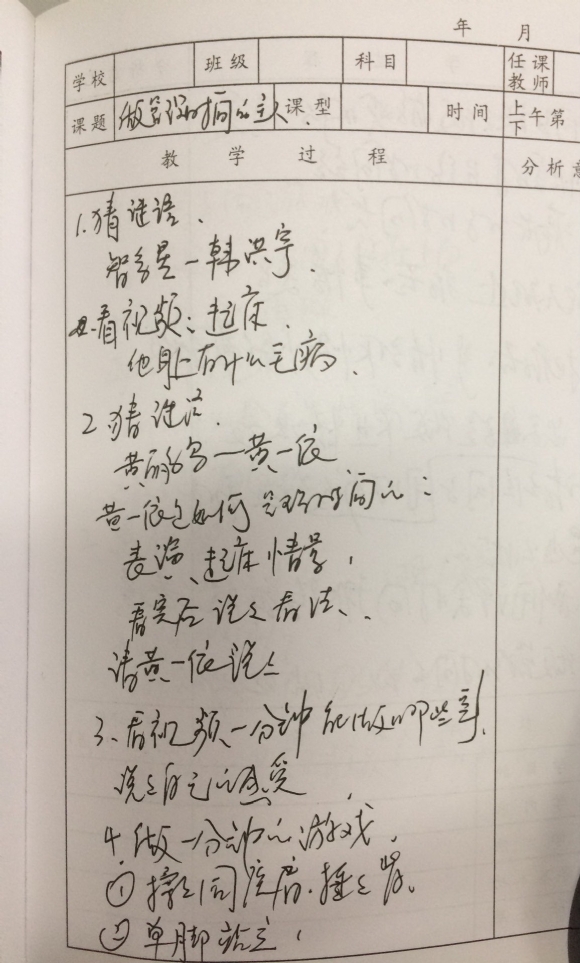 年 月
学校 班级 科目 任课教师
课题 做管理时间的主人 课型 时间 上下午第
教学过程 分析意
1.猜谜语、
智多星一韩洪宇、
看视频:起床、
他身上有什么毛病、
2猜谜语、
黄一依
黄一依是如何管理时间的:
表演、起床情景,
看完后说说看法、
请黄一依说说
3、看视频、一分钟能做哪些事、
说说自己的感受
4.做一分钟的游戏、
① 同座肩、捶捶背、
② 单脚站立,